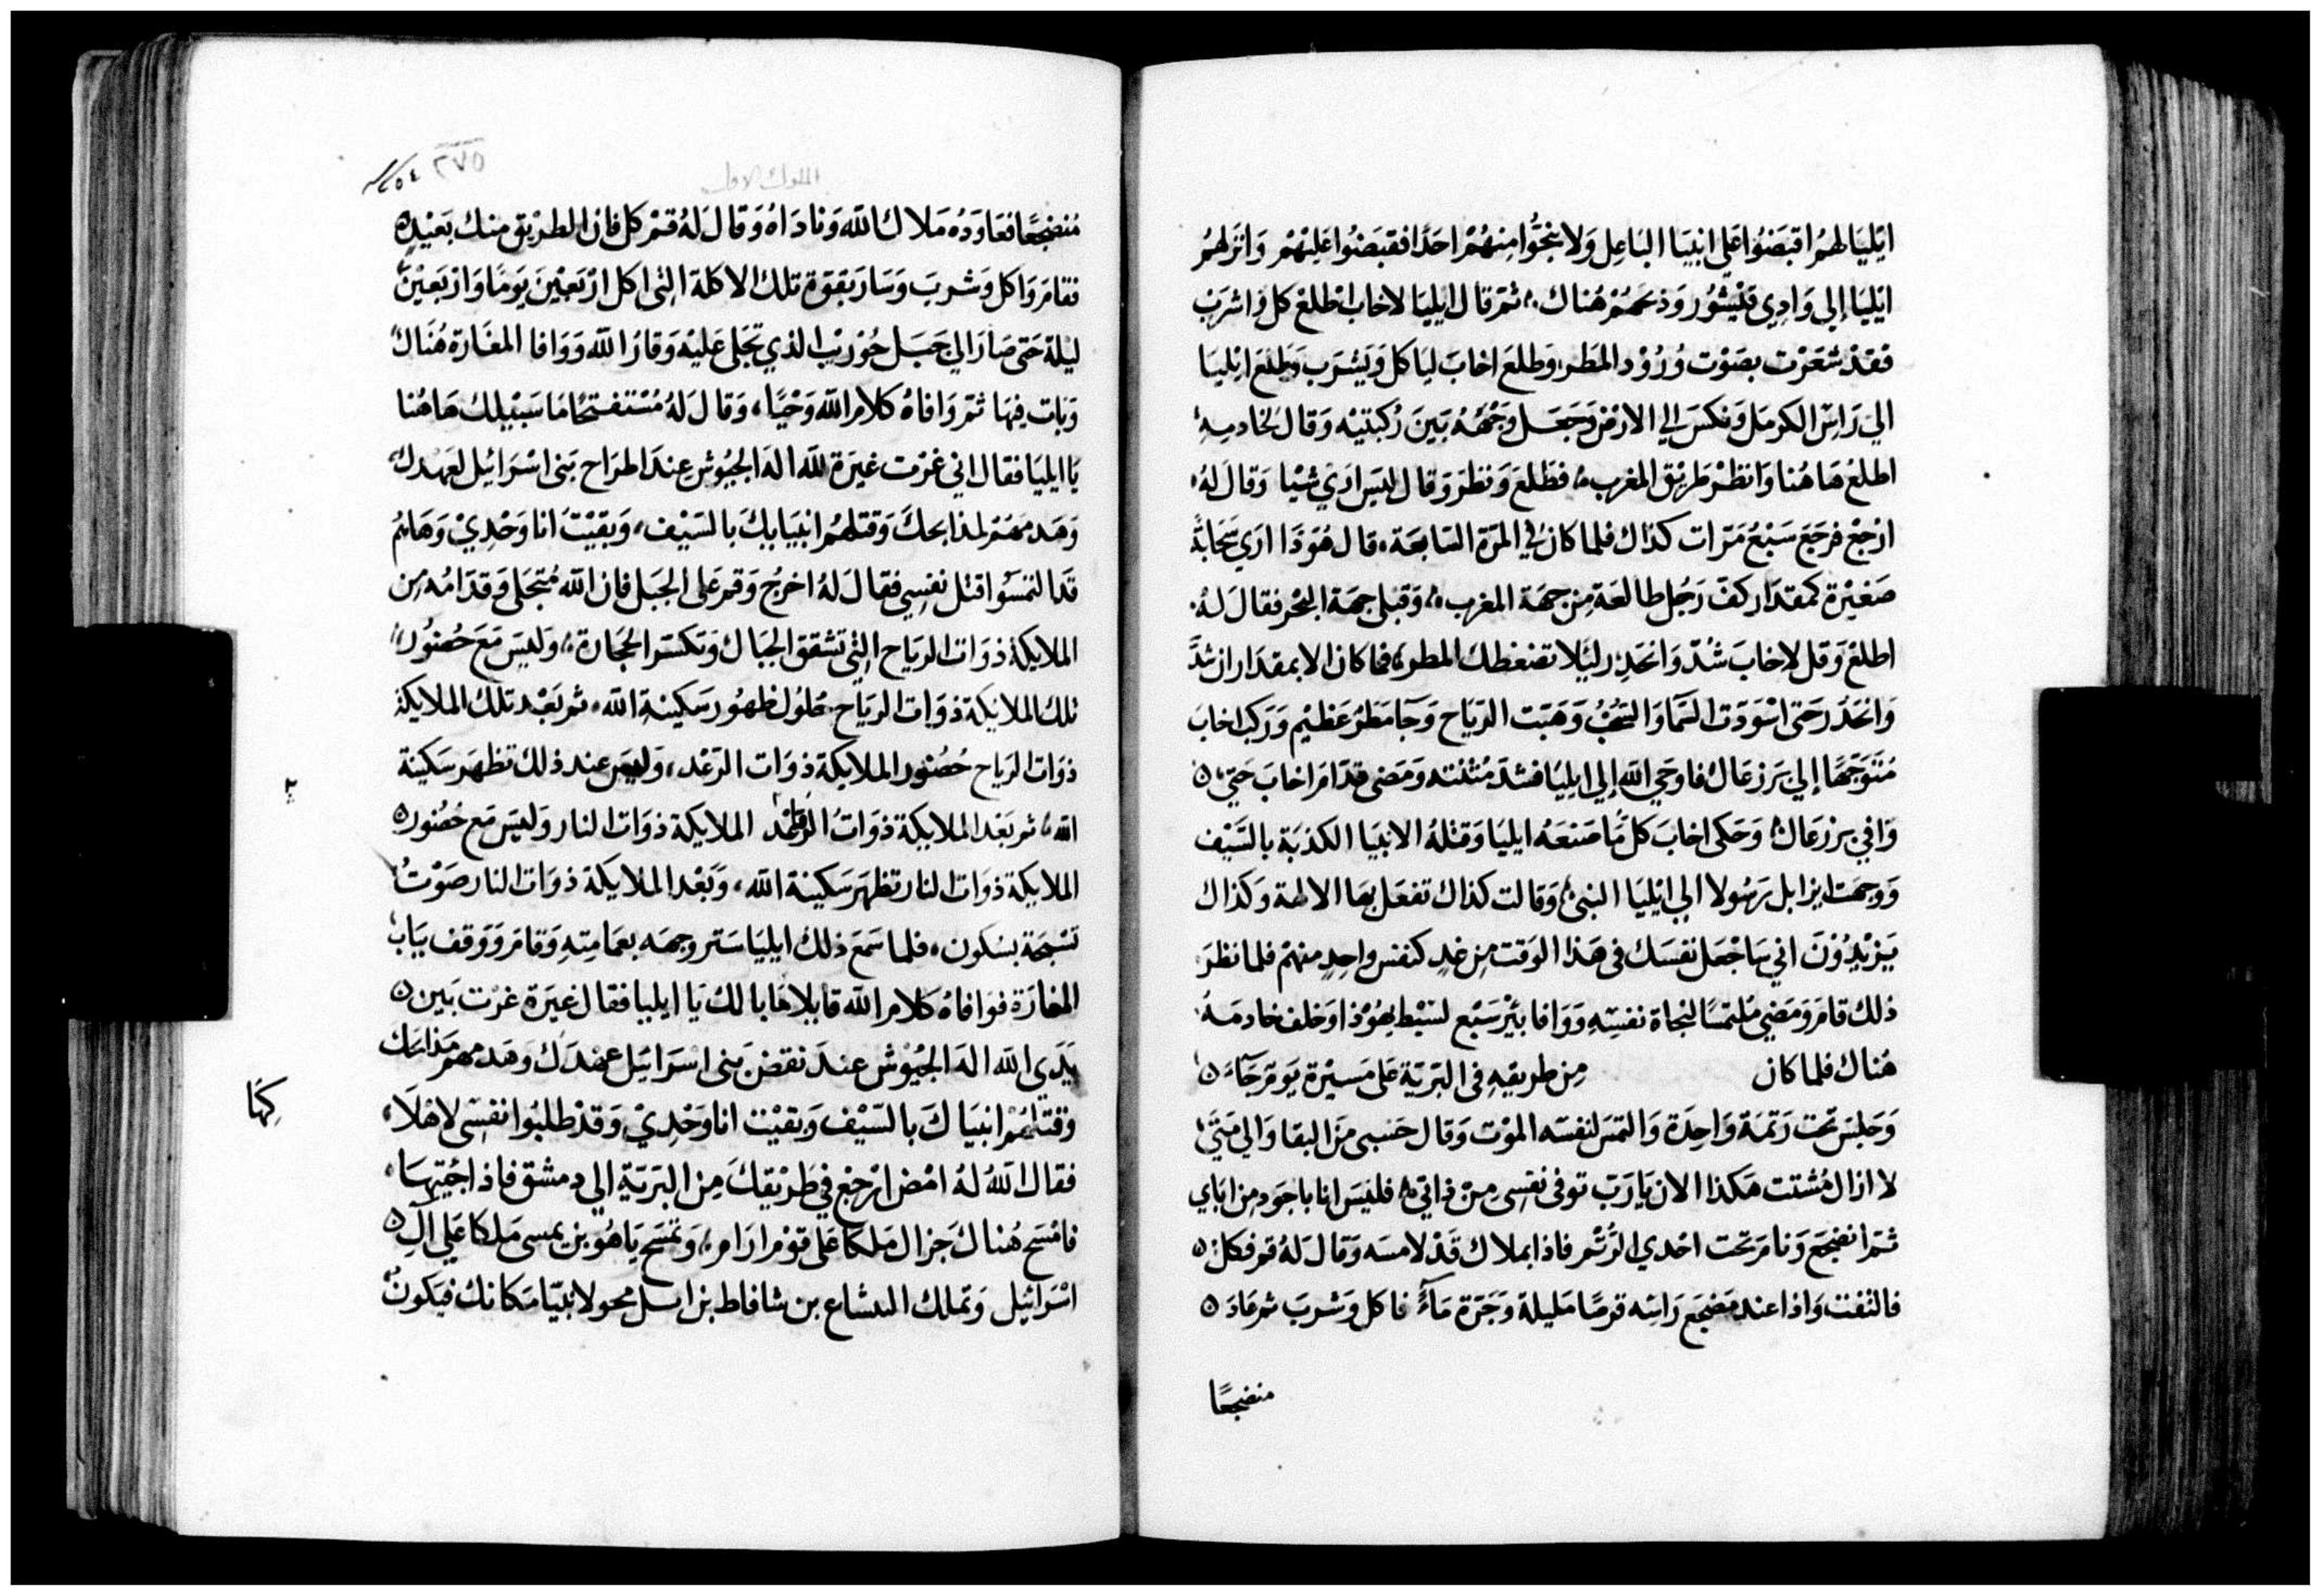 ايليا لهمُ اقبَضُوا عَلي انبيَا البَاعِل وَلا ينجُوا منهُمْ احَدًا فقبَضُوا عَليْهمْ وَانزلهُم
ايْليَا إلي وَادِي قيْشُور وَذبحَهُمْ هُناك ثمّ قال ايليَا لاخاب اطلعْ كل وَاشرَبْ
فقدْ شعَرْت بصَوْت وُرُوْد المَطر وَطلعَ اخابَ ليَاكل وَيَشرَب وَطلعَ ايْليَا
الي رَاس الكرمَل وَنكسَ الي الارْض وَجَعَل وَجْهَهُ بَينَ رُكبتيْه وَقال لخادمِهِ
اطلعْ هَاهُنا وَانظرْ طريْق المَغرب فطلعَ وَنظرَ وَقال ليسَ ارَيْ شيْا وَقال لهُ
ارْجعْ فرجَعَ سَبْعُ مَرّات كذاك فلما كان في المرّة السَّابعَة قال هُوَذا ارَي سَحَابَة
صَغيْرَة كمقدَار كفّ رَجُل طالعَة مِن جهَة المغرب وَقبل جهَة البَحْر فقال لهُ
اطلعْ وَقل لاخابَ شُدّ وَانحَدِر ليَلا تضغطك المطر فما كان الا بمقدَار ان شدّ
وَانحَدَر حَتى اسْوَدّت السَّما وَالسُحُبُ وَهَبّت الرّيَاح وَجَا مَطرٌ عَظيْم وَرَكبَ اخابَ
مُتَوَجّهًا إلي يَرزعَال فاوحَي الله إلي ايليَا فشدّ مُتْنته وَمَضى قدّامَ اخابَ حَتي
وَافي يرزعَال وَحَكى اخابَ كلّ مَا صَنعَه ايليَا وَقتْلهُ الانبيَا الكذبَة بالسَّيْف
وَوَجهَت ايزابل رَسُولا الي ايْليَا النبى وَقالت كذاك تفعَل بهَا الالهة وَكذاك
يَزيْدُوْنَ اني سَاجْعَل نفسَك فى هَذا الوَقت مِن غدٍ كنفس واحِدٍ منهمْ فلما نظرَ
ذلك قامَ وَمَضي مُلتمسًا لنجاة نفسِهِ وَوَافا بيْرَ سَبْع لسِبْط يهُوْذا وَخلف خادمَهُ
هُناك فلما كان مِن طريقهِ في البَريّة عَلى مَسيْرَة يَوم جَاءَ
وَجَلسَ تحَت رَتمَة وَاحِدَة وَالتمَسَ لنفسه الموْت وَقال حَسْبى مِنَ البقا وَالي مَتي
لا ازال مُشتت هَكذا الان يَا رَبّ توفى نفسِى مِنْ ذاتي فلسْتُ انا باجوَد مِن ابَاي
ثمّ انضجَعَ وَنامَ تحت احْدي الرّتم فاذا بملاك قدْ لامسَه وَقال لهُ قم فكل
فالتفت وَاذا عند مَضجَع رَاسِه قرصًا مَليلة وَجَرّة مَاءً فاكل وَشربَ ثم عَادَ
منضجعًا
الملوك الاول
٢٧٥
٢٥٤
مُنضجعًا فعَاوَدُه مَلاك الله وَنادَاهُ وَقال لهُ قمْ كل فان الطريق منك بَعَيْدٍ
فقامَ وَاكل وَشربَ وَسَارَ بقوّة تلك الاكلة التى اكل ارْبَعيْنَ يَومًا وَارْبَعيْنَ
ليْلة حَتى صَارَ الي جَبَل حُوْريْب الذي تجَلى عَليْه وَقارُ الله وَوَافا المغارَة هُناكَ
وَبَات فيهَا ثمّ وَافاهُ كلام الله وَحْيًا وَقال لهُ مُسْتفتحًا مَا سَبيْلك هَاهُنا
يَا ايليَا فقال اني غرْت غيَرَة لله اله الجيُوش عِندَ اطرَاح بَنى اسْرَائيل لعَهْدك
وَهَدمهُمْ لمذابحك وَقتلهمُ انبيَايك بالسَّيْف وَبقيْتُ انا وَحْدِيْ وَهَاهُم
قدَ التمسُوا قتل نفسِي فقال لهُ اخرُج وَقم عَلى الجَبَل فان الله مُتجَلى وَقدّامُه مِن
الملايكة ذوَات الريَاح التى تشقق الجبَال وَتكسّر الحجَارة وَليسَ مَعَ حُضُور
تلك الملايكة ذوَات الريَاح حُلول ظهُور سَكينهِ الله ثم بَعْد تلك الملايكة
ذوَات الريَاح حُضُور الملايكة ذوَات الرّعْد وَليسَ عند ذلك تظهَر سَكينة
الله ثم بَعْد الملايكة ذوَاتُ الرعد الملايكة ذوَات النار وَليسَ مَع حُضُور
الملايكة ذوَات النار تظهَر سَكينة الله وَبَعْد الملايكة ذوَات النار صَوْتُ
تسْبحَة بسُكون فلما سَمعَ ذلك ايليَا سَتر وجهَه بعمَامتِهِ وَقامَ وَوَقف ببَاب
المغارَة فوَافاهُ كلام الله قايلا هَا بالك يَا ايليا فقال غيرَة غرْت بَين
يَدَي الله اله الجيُوْش عندَ نقض بَنى اسْرَايَيل عهْدَك وَهَدمهم مَذابحك
وَقتلهُمْ انبيَاكَ بالسَّيْف وَبقيْت انا وَحْدِيْ وَقدْ طلبُوا نفسِى لاهْلاَ
كِهَا
فقال اللهُ لهُ امْض ارْجعْ في طريْقكَ مِن البَريّة الي دمشق فاذا جُيتهَا
فامْسَح هُناكَ جزال مَلكا عَلى قوْم ارَام وَتمَسَح يَاهُو بن يمسى مَلكا عَلي آل
اسْرَائيل وَتملك اليشاع بن شافاط بن ابيل محولا نبيّا مَكانك فيَكونُ